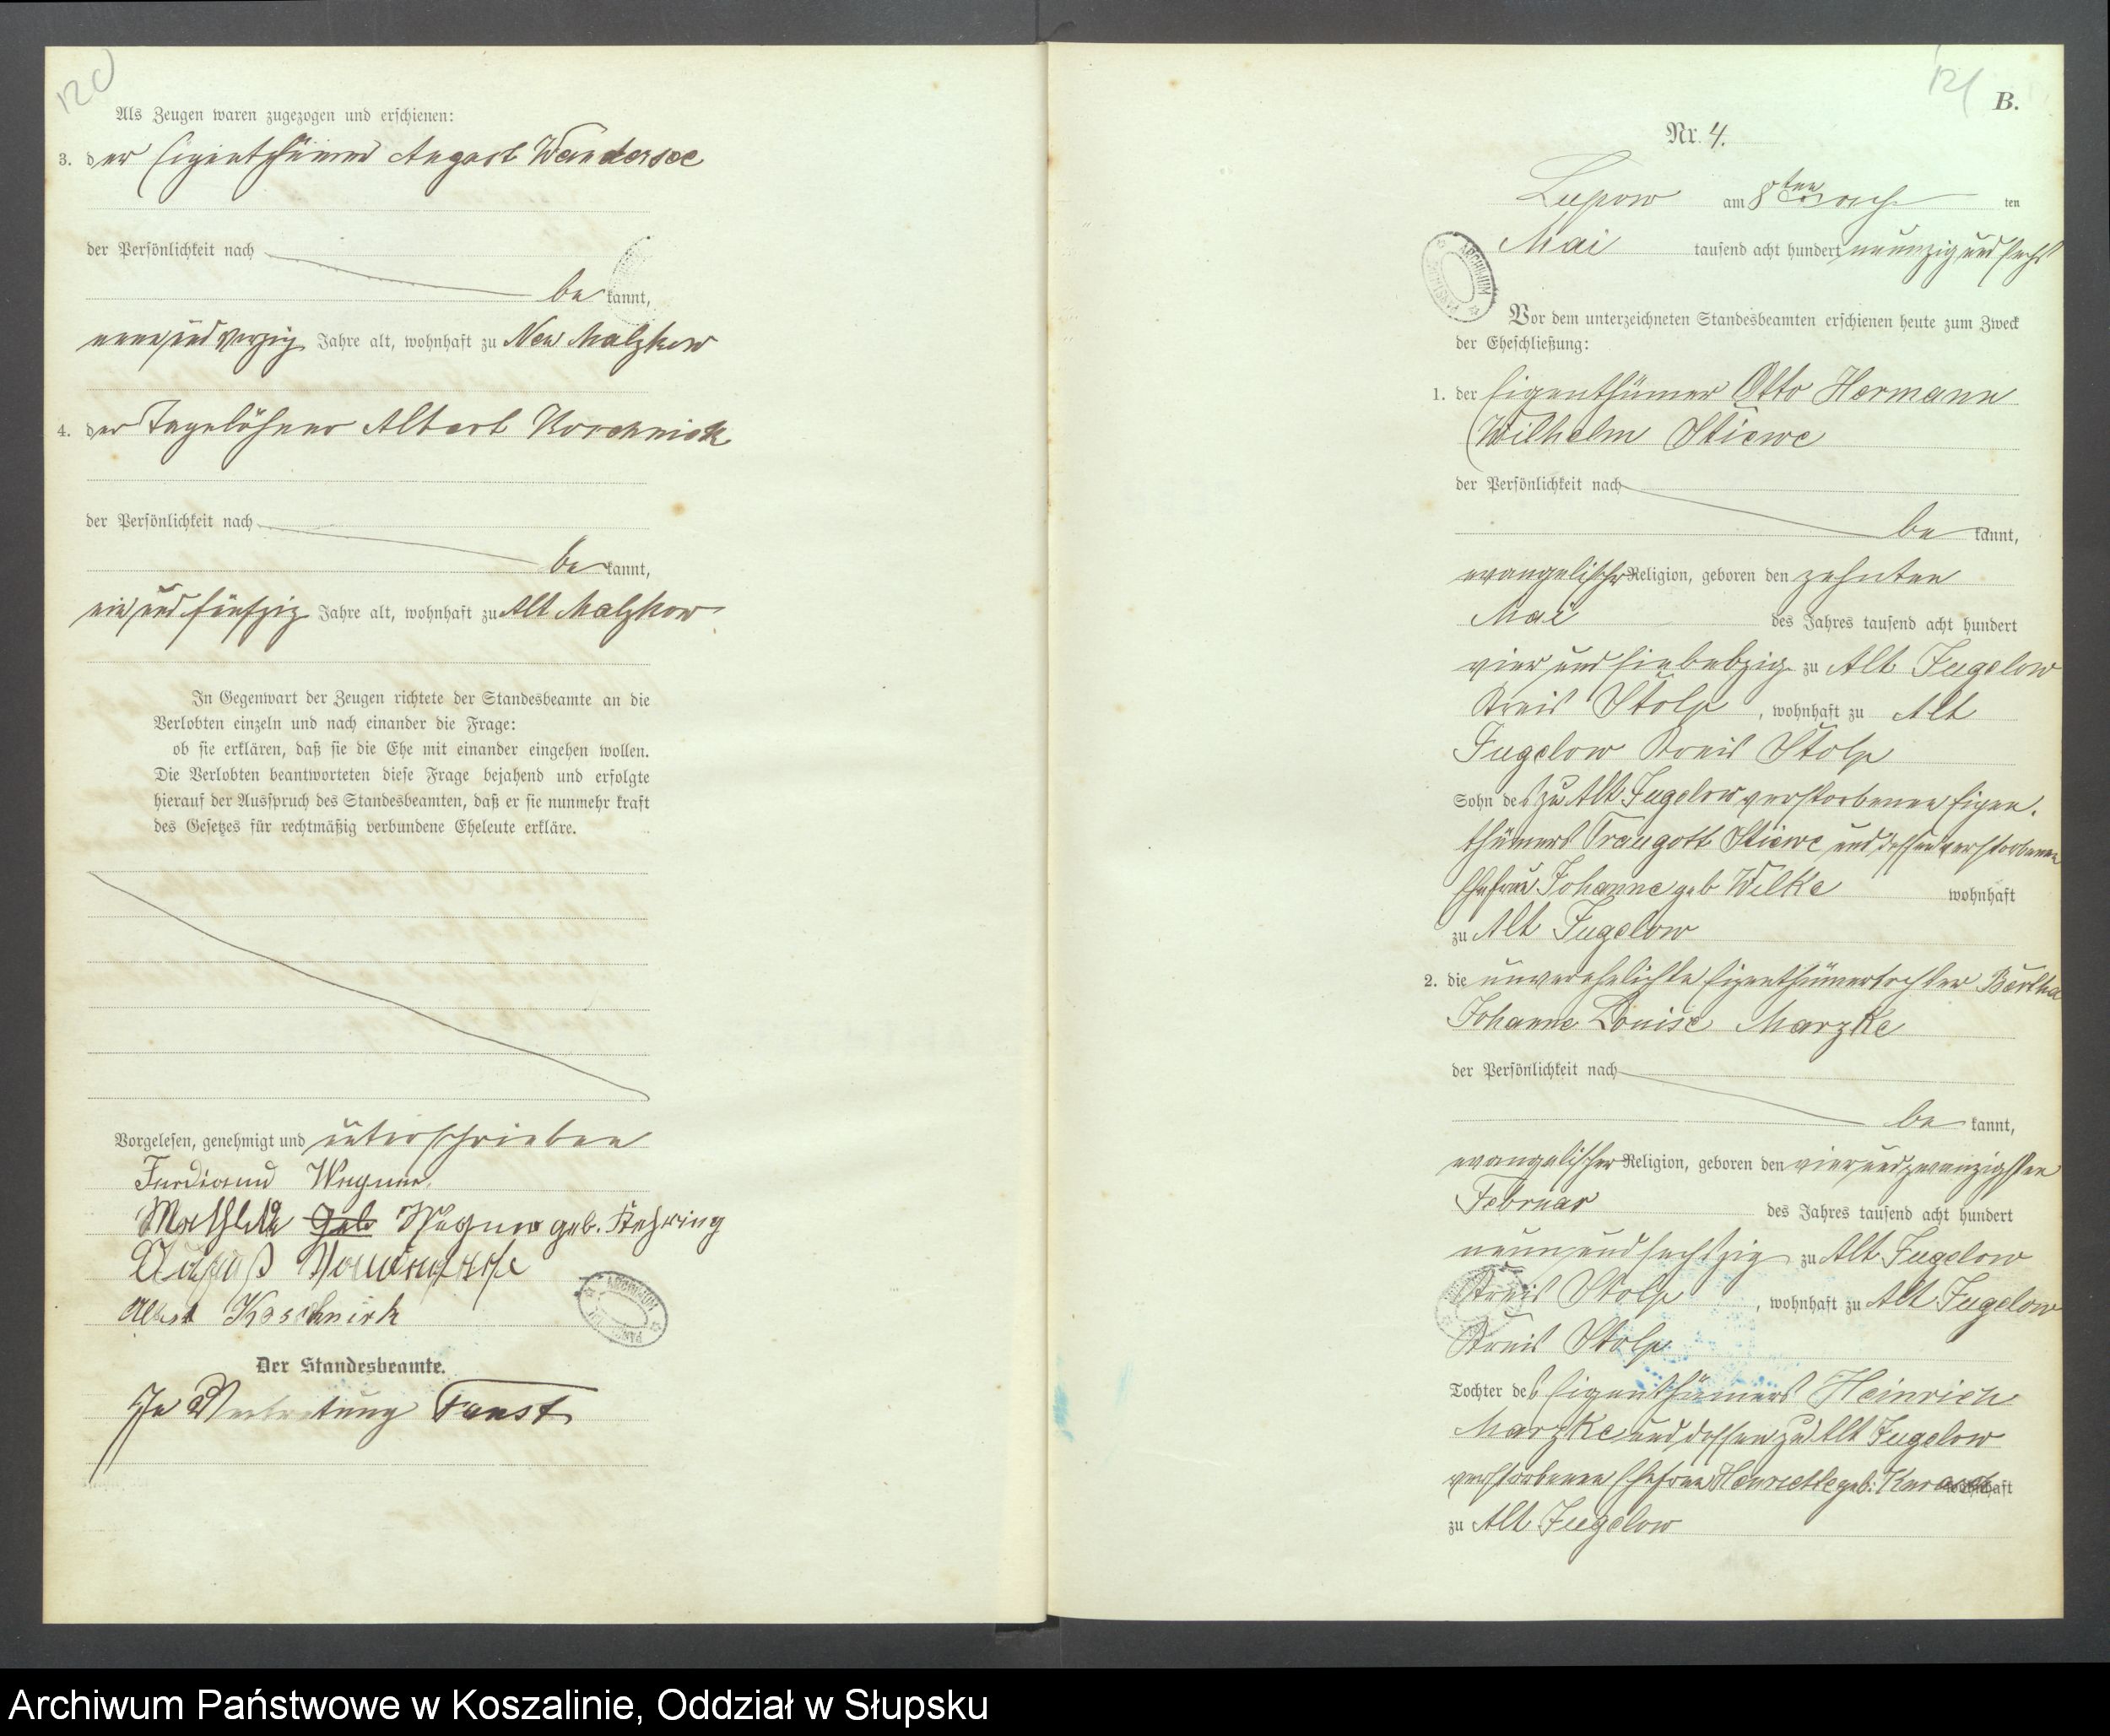 120
Als Zeugen waren zugezogen und erschienen:
3. der Eigenthümer August Wandersee
der Persönlichkeit nach
bekannt,
neun und vierzig Jahre alt, wohnhaft zu Neu Malzkow
4. der Tagelöhner Albert Koschnick
der Persönlichkeit nach
bekannt,
ein und fünfzig Jahre alt, wohnhaft zu Alt Malzkow
In Gegenwart der Zeugen richtete der Standesbeamte an die
Verlobten einzeln und nach einander die Frage:
ob sie erklären, daß sie die Ehe mit einander eingehen wollen.
Die Verlobten beantworteten diese Frage bejahend und erfolgte
hierauf der Ausspruch des Standesbeamten, daß er sie nunmehr kraft
des Gesetzes für rechtmäßig verbundene Eheleute erkläre.
Vorgelesen, genehmigt und unterschrieben
Ferdinand Wegner
Mathilde Geb Wegner geb.
August
Albert Koschnick
ARCHIWUM
Der Standesbeamte.
In Vertretung Faust
121
B.
Nr. 4.
Lupow am 8ten ten
Mai tausend acht hundert neunzig und sechs
ARCHIWUM
Vor dem unterzeichneten Standesbeamten erschienen heute zum Zweck
der Eheschließung:
1. der Eigenthümer Otto Hermann
Wilhelm Stiewe
der Persönlichkeit nach
bekannt,
evangelischer Religion, geboren den zehnten
Mai des Jahres tausend acht hundert
vier und siebebzig zu Alt Jugelow
Kreis Stolp, wohnhaft zu Alt
Jugelow Kreis Stolp
Sohn des zu Alt Jugelow verstorbenen Eigen-
thümers Traugott Stiewe und dessen verstorbenen
Ehefrau Johanne geb Wilke wohnhaft
zu Alt Jugelow
2. die unverehelichte Eigenthümertochter Bertha
Johanne Louise Marzke
der Persönlichkeit nach
bekannt,
evangelischer Religion, geboren den vier und zwanzigsten
Februar des Jahres tausend acht hundert
neun und sechszig zu Alt Jugelow
Kreis Stolp, wohnhaft zu Alt Jugelow
Kreis Stolp
Tochter des Eigenthümers Heinrich
Marzke und dessen zu Alt Jugelow
verstorbenen Ehefrau Henriette geb: wohnhaft
zu Alt Jugelow
Archiwum Państwowe w Koszalinie, Oddział w Słupsku